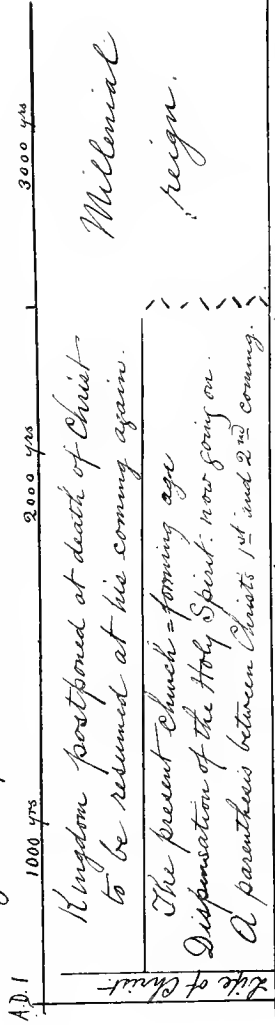 A.D. 1
1000 yrs
2000 yrs
3000 yrs
Life of Christ
Kingdom postponed at death of Christ
to be resumed at his coming again.
The present church = forming age
Dispensation of the Holy Spirit. now going on.
A parenthesis between Christs 1st and 2nd coming.
Millenial
reign.